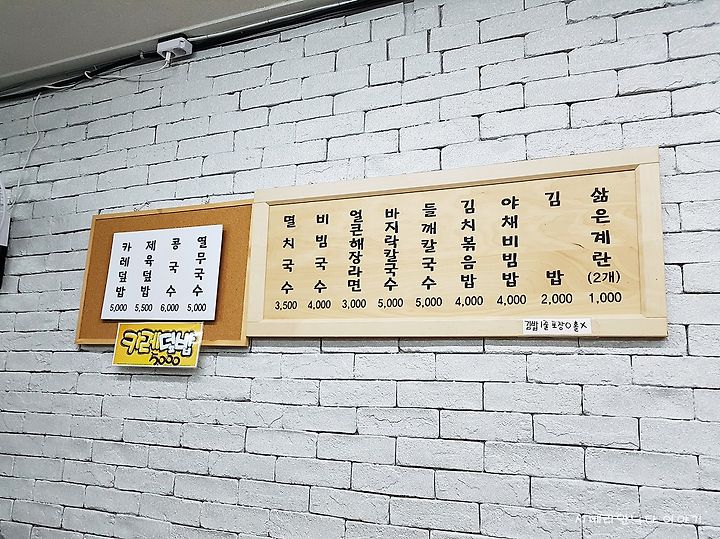 카레덮밥 5,000
제육덮밥 5,500
콩국수 6,000
열무국수 5,000
카레덮밥
5000
멸치국수 3,500
비빔국수 4,000
얼큰해장라면 3,000
바지락칼국수 5,000
들깨칼국수 5,000
김치볶음밥 4,000
야채비빔밥 4,000
김밥 2,000
삶은계란(2개) 1,000
김밥 1줄 포장O 홀X